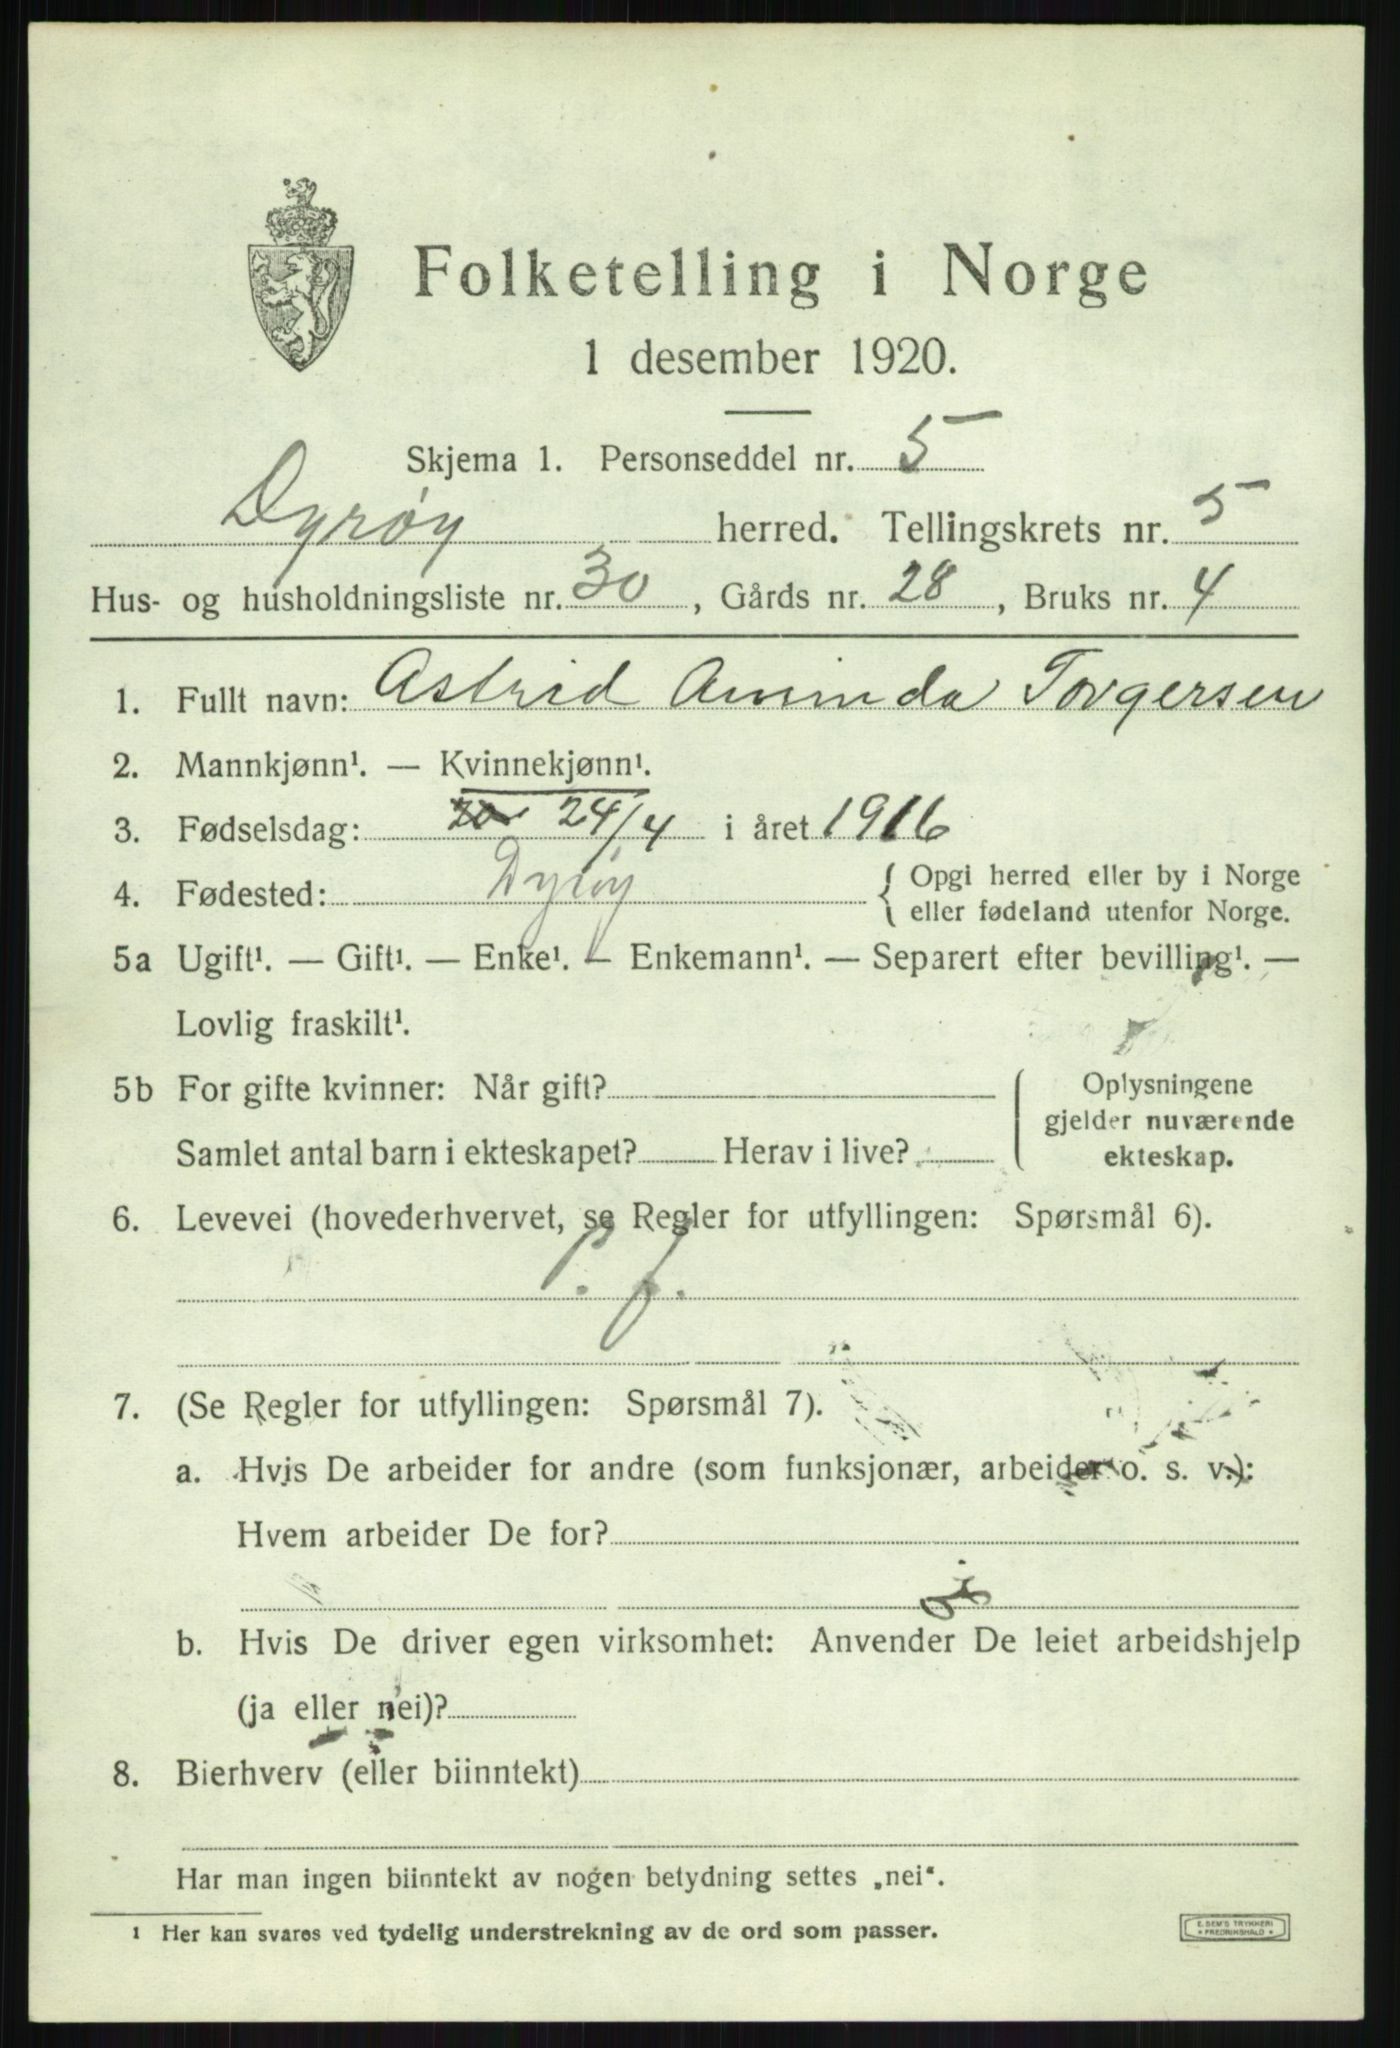 Folketelling i Norge
1 desember 1920.
Skjema 1. Personseddel nr. 5
Dyrøy herred. Tellingskrets nr. 5
Hus- og husholdningsliste nr. 30, Gårds nr. 28, Bruks nr. 4
1. Fullt navn: Astrid Aminda Torgersen
2. Mannkjønn¹. — Kvinnekjønn¹.
3. Fødselsdag: 24/4 i året 1916
4. Fødested: Dyrøy { Opgi herred eller by i Norge
eller fødeland utenfor Norge.
5a Ugift¹. — Gift¹. — Enke¹. — Enkemann¹. — Separert efter bevilling¹. —
Lovlig fraskilt¹.
5b For gifte kvinner: Når gift?
Samlet antal barn i ekteskapet? Herav i live?
Oplysningene
gjelder nuværende
ekteskap.
6. Levevei (hovederhvervet, se Regler for utfyllingen: Spørsmål 6).
p. f.
7. (Se Regler for utfyllingen: Spørsmål 7).
a. Hvis De arbeider for andre (som funksjonær, arbeider o. s. v.):
Hvem arbeider De for?
b. Hvis De driver egen virksomhet: Anvender De leiet arbeidshjelp
(ja eller nei)?
8. Bierhverv (eller biinntekt)
Har man ingen biinntekt av nogen betydning settes „nei“.
1 Her kan svares ved tydelig understrekning av de ord som passer.
E. SEM'S TRYKKERI
* FREDRIKSHALD *